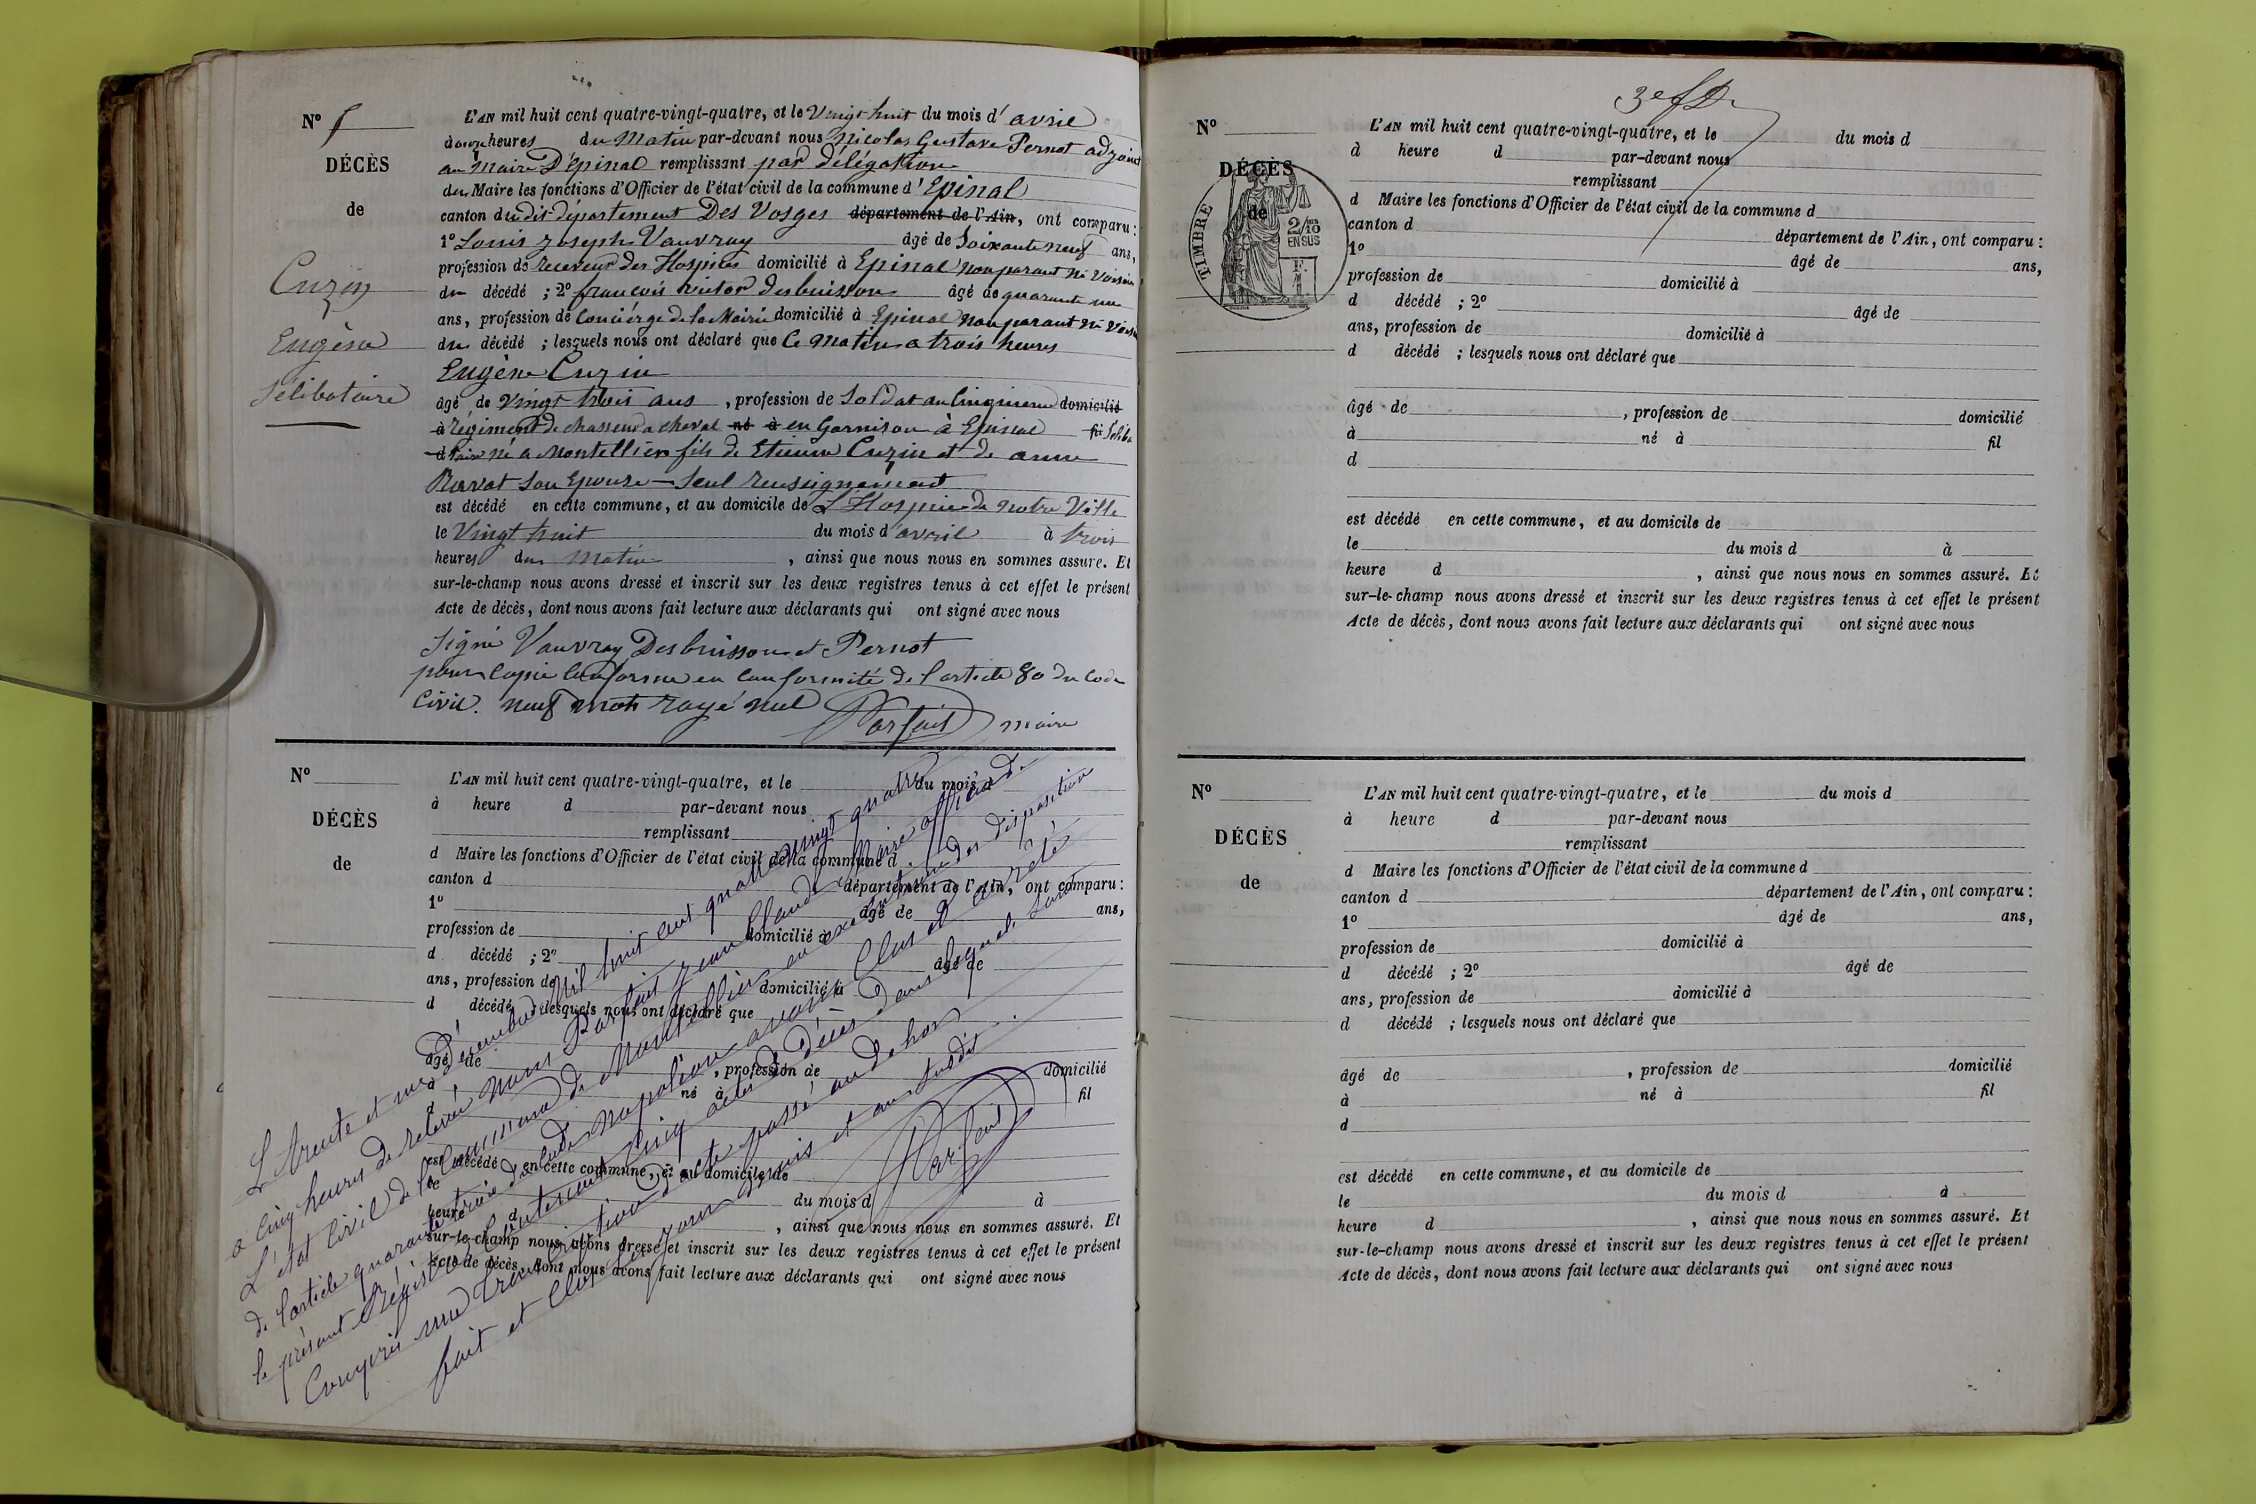 N° 5
DÉCÈS
de
Cuzin
Eugène
Sélibataire
L'AN mil huit cent quatre-vingt-quatre, et le Vingt huit du mois d'avril
à onze heures du Matin par-devant nous Nicolas Gustave Pernot adjoint
au Maire D'Épinal remplissant par délégation
du Maire les fonctions d'Officier de l'état civil de la commune d'Epinal
canton dudit département Des Vosges département de l'Ain, ont comparu :
1° Louis Joseph Vauvray âgé de Soixante neuf ans,
profession de receveur des Hospices domicilié à Epinal non parant ni Voisin
du décédé ; 2° francois victor Desbuisson âgé de quarante un
ans, profession de Concierge de la Mairie domicilié à Epinal non parant ni Voisin
du décédé ; lesquels nous ont déclaré que Ce Matin a trois heures
Eugène Cuzin
âgé de Vingt trois ans , profession de Soldat au Cinquieme domicilié
à régiment de chasseur a cheval né à en Garnison à Epinal fil Seliba
d taire né a Montellier fils de Etienne Cuzin et de anne
Ravat son Epouse – Seul renseignement
est décédé en cette commune, et au domicile de L'Hospice de Notre Ville
le Vingt huit du mois d'avril à trois
heures du Matin , ainsi que nous nous en sommes assuré. Et
sur-le-champ nous avons dressé et inscrit sur les deux registres tenus à cet effet le présent
Acte de décès, dont nous avons fait lecture aux déclarants qui ont signé avec nous
Signé Vauvray Desbuisson et Pernot
pour Copie Conforme en Conformité de l'article 80 du Code
Civil. neuf mots rayé nul Parfait maire
N°
DÉCÈS
de
L'AN mil huit cent quatre-vingt-quatre, et le du mois d
à heure d par-devant nous
remplissant
d Maire les fonctions d'Officier de l'état civil de la commune d
canton d département de l'Ain, ont comparu :
1° âgé de ans,
profession de domicilié à
d décédé ; 2° âgé de
ans, profession de domicilié à
d décédé ; lesquels nous ont déclaré que
âgé de , profession de domicilié
à né à fil
d
est décédé en cette commune, et au domicile de
le du mois d à
heure d , ainsi que nous nous en sommes assuré. Et
sur-le-champ nous avons dressé et inscrit sur les deux registres tenus à cet effet le présent
Acte de décès, dont nous avons fait lecture aux déclarants qui ont signé avec nous
L trente et un Décembre mil huit cent quatre vingt quatre
a Cinq heures de relevée nous Parfait Jean Claude Maire officier de
L'état Civil de la Commune de Montellier en execution des disposition
de l'article quarante trois du Code Napoléon avons Clos et arrêté
le présent Régistre Contenant Cinq actes de Décès dans lequel sont
Compris une transcription d'acte passé au dehors
fait et Clos les jour mois et an susdit.
Parfait
3e f
N°
DÉCÈS
de
TIMBRE
2/10
EN SUS
F.
1
L'AN mil huit cent quatre-vingt-quatre, et le du mois d
à heure d par-devant nous
remplissant
d Maire les fonctions d'Officier de l'état civil de la commune d
canton d département de l'Ain, ont comparu :
1° âgé de ans,
profession de domicilié à
d décédé ; 2° âgé de
ans, profession de domicilié à
d décédé ; lesquels nous ont déclaré que
âgé de , profession de domicilié
à né à fil
d
est décédé en cette commune, et au domicile de
le du mois d à
heure d , ainsi que nous nous en sommes assuré. Et
sur-le-champ nous avons dressé et inscrit sur les deux registres tenus à cet effet le présent
Acte de décès, dont nous avons fait lecture aux déclarants qui ont signé avec nous
N°
DÉCÈS
de
L'AN mil huit cent quatre-vingt-quatre, et le du mois d
à heure d par-devant nous
remplissant
d Maire les fonctions d'Officier de l'état civil de la commune d
canton d département de l'Ain, ont comparu :
1° âgé de ans,
profession de domicilié à
d décédé ; 2° âgé de
ans, profession de domicilié à
d décédé ; lesquels nous ont déclaré que
âgé de , profession de domicilié
à né à fil
d
est décédé en cette commune, et au domicile de
le du mois d à
heure d , ainsi que nous nous en sommes assuré. Et
sur-le-champ nous avons dressé et inscrit sur les deux registres tenus à cet effet le présent
Acte de décès, dont nous avons fait lecture aux déclarants qui ont signé avec nous